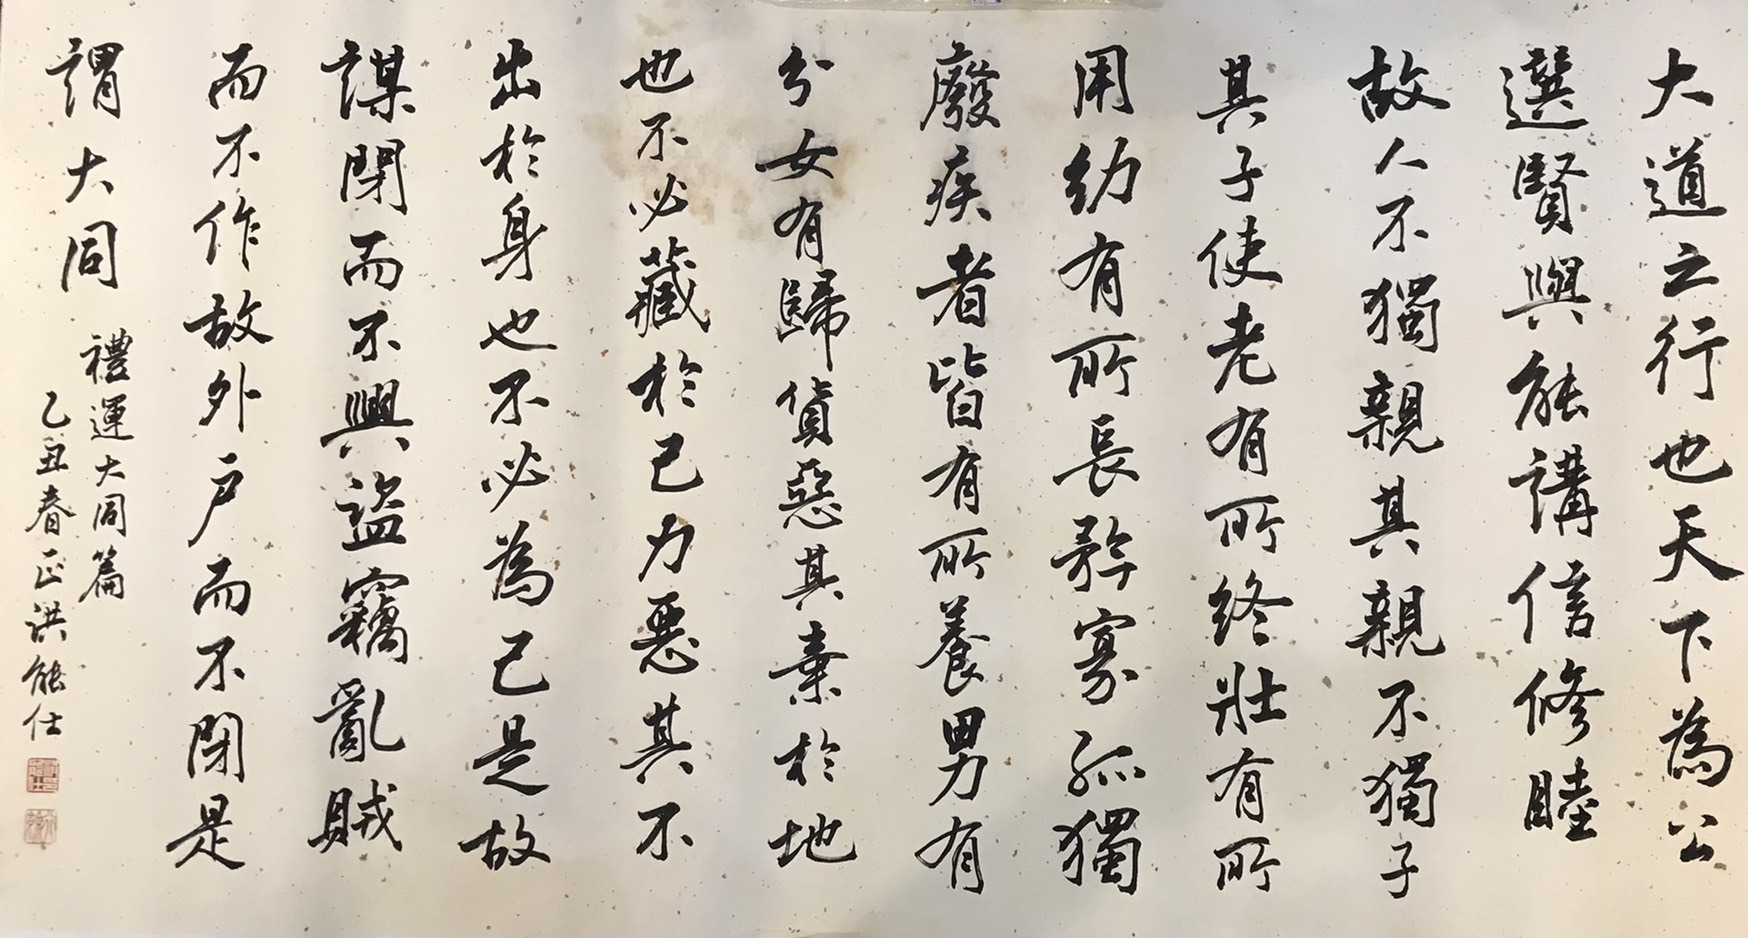 大道之行也天下為公
選賢與能講信修睦
故人不獨親其親不獨子
其子使老有所終壯有所
用幼有所長矜寡孤獨
廢疾者皆有所養男有
分女有歸貨惡其棄於地
也不必藏於己力惡其不
出於身也不必為己是故
謀閉而不興盜竊亂賊
而不作故外戶而不閉是
謂大同
禮運大同篇
乙丑春正洪能仕